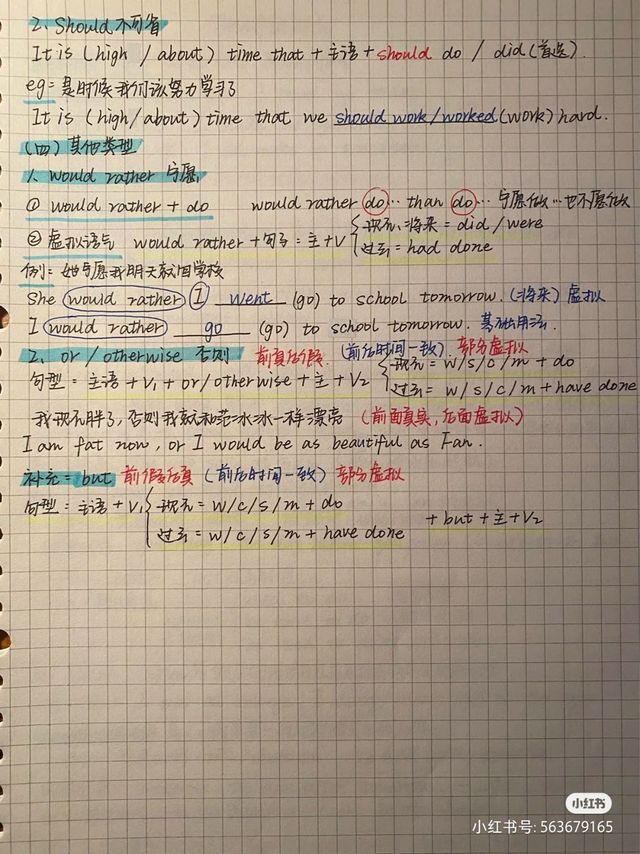 2、Should 不可省
It is (high / about) time that + 主语 + should do / did (首选).
eg: 是时候我们该努力学习了
It is (high/about) time that we should work/worked (work) hard.
(四) 其他类型
1、would rather 宁愿
① would rather + do would rather do … than do … 宁愿做 … 也不愿做
② 虚拟语气 would rather + 句子: 主 + V { 现在、将来 = did / were
过去 = had done
例: 她宁愿我明天就回学校
She would rather I went (go) to school tomorrow. (将来) 虚拟
I would rather go (go) to school tomorrow. 基础用法.
2、or / otherwise 否则 前真后假 (前后时间一致). 部分虚拟
句型: 主语 + V1 + or / otherwise + 主 + V2 { 现在 = w/s/c/m + do
过去 = w/s/c/m + have done
我现在胖了, 否则我就和范冰冰一样漂亮 (前面真实, 后面虚拟)
I am fat now, or I would be as beautiful as Fan.
补充: but 前假后真 (前后时间一致) 部分虚拟
句型: 主语 + V1 { 现在 = w/c/s/m + do
+ but + 主 + V2
过去 = w/c/s/m + have done
小红书
小红书号: 563679165